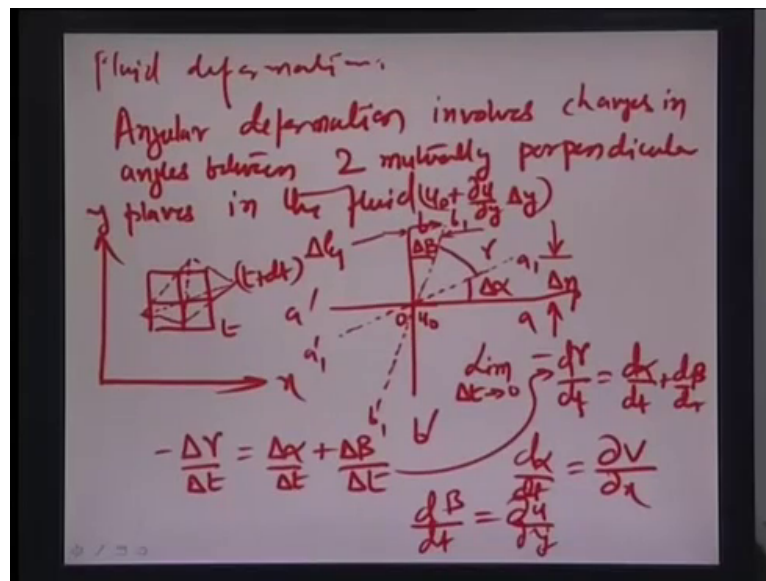 Fluid deformation.
Angular deformation involves changes in
angles between 2 mutually perpendicular
planes in the fluid (u₀ + ∂u/∂y Δy)
y
b b₁
Δβ γ
a₁
(t+dt)
Δα
Δη
a'
0 u₀
a
t
a₁'
x
b₁' b'
Lim Δt→0 -dγ/dt = dα/dt + dβ/dt
-Δγ/Δt = Δα/Δt + Δβ/Δt
dα/dt = ∂v/∂x
dβ/dt = ∂u/∂y